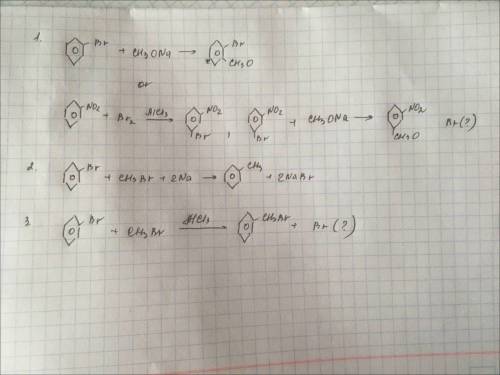 1.
Br + CH3ONa → Br CH3O
or
NO2 + Br2 AlCl3 → NO2 Br , NO2 Br + CH3ONa → NO2 CH3O Br(?)
2. Br + CH3Br + 2Na → CH3 + 2NaBr
3 Br + CH3Br AlCl3 → CH3Br + Br(?)